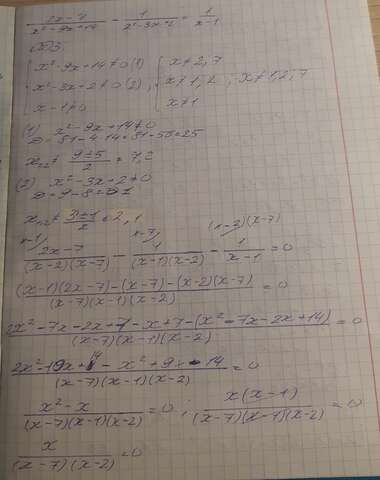 (2x-7)/(x²-9x+14) - 1/(x²-3x+2) = 1/(x-1)
ОДЗ:
{ x²-9x+14≠0 (1) { x≠2,7
{ x²-3x+2≠0 (2) ; { x≠1,2 ; x≠1,2,7
{ x-1≠0 { x≠1
(1) x²-9x+14≠0
D=81-4·14=81-56=25
x₁,₂≠(9±5)/2=7,2
(2) x²-3x+2≠0
D=9-8=1
x₁,₂≠(3±1)/2=2,1
x-1/ x-7/ (x-2)(x-7)
(2x-7)/((x-2)(x-7)) - 1/((x-1)(x-2)) - 1/(x-1) =0
((x-1)(2x-7)-(x-7)-(x-2)(x-7))/((x-7)(x-1)(x-2)) =0
(2x²-7x-2x+7-x+7-(x²-7x-2x+14))/((x-7)(x-1)(x-2)) =0
(2x²-10x+14-x²+9x-14)/((x-7)(x-1)(x-2)) =0
(x²-x)/((x-7)(x-1)(x-2)) =0 ; (x(x-1))/((x-7)(x-1)(x-2)) =0
x/((x-7)(x-2)) =0